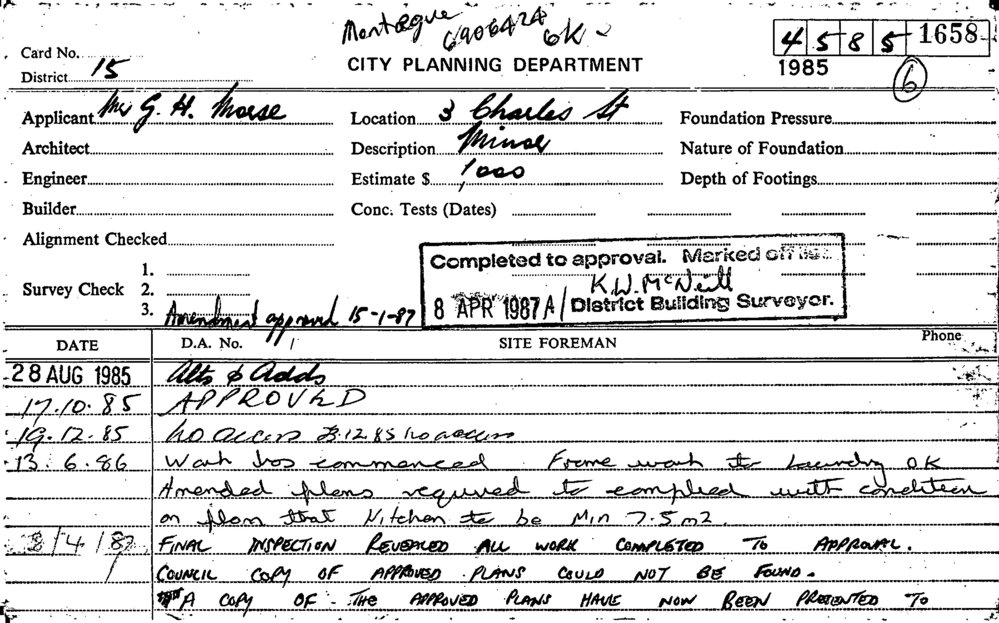 Montague 6906424 OK
4 5 8 5 1658
1985
6
Card No.
District 15
CITY PLANNING DEPARTMENT
Applicant Mr G. H. Morse Location 3 Charles St Foundation Pressure
Architect Description Minor Nature of Foundation
Engineer Estimate $ 1,000 Depth of Footings
Builder Conc. Tests (Dates)
Alignment Checked
Survey Check 1.
2.
3. Amendment approved 15-1-87
Completed to approval. Marked off
K.W. McNeill
8 APR 1987 A/ District Building Surveyor.
DATE D.A. No. SITE FOREMAN Phone
28 AUG 1985 Alts & Adds
17.10.85 APPROVED
19.12.85 no access 12 85 no access
13.6.86 Work has commenced Frame work to Laundry OK
Amended plans required to complied with condition
on plan that Kitchen to be Min 7.5 m2.
8/4/87 FINAL INSPECTION REVEALED ALL WORK COMPLETED TO APPROVAL.
COUNCIL COPY OF APPROVED PLANS COULD NOT BE FOUND.
A COPY OF THE APPROVED PLANS HAVE NOW BEEN PRESENTED TO